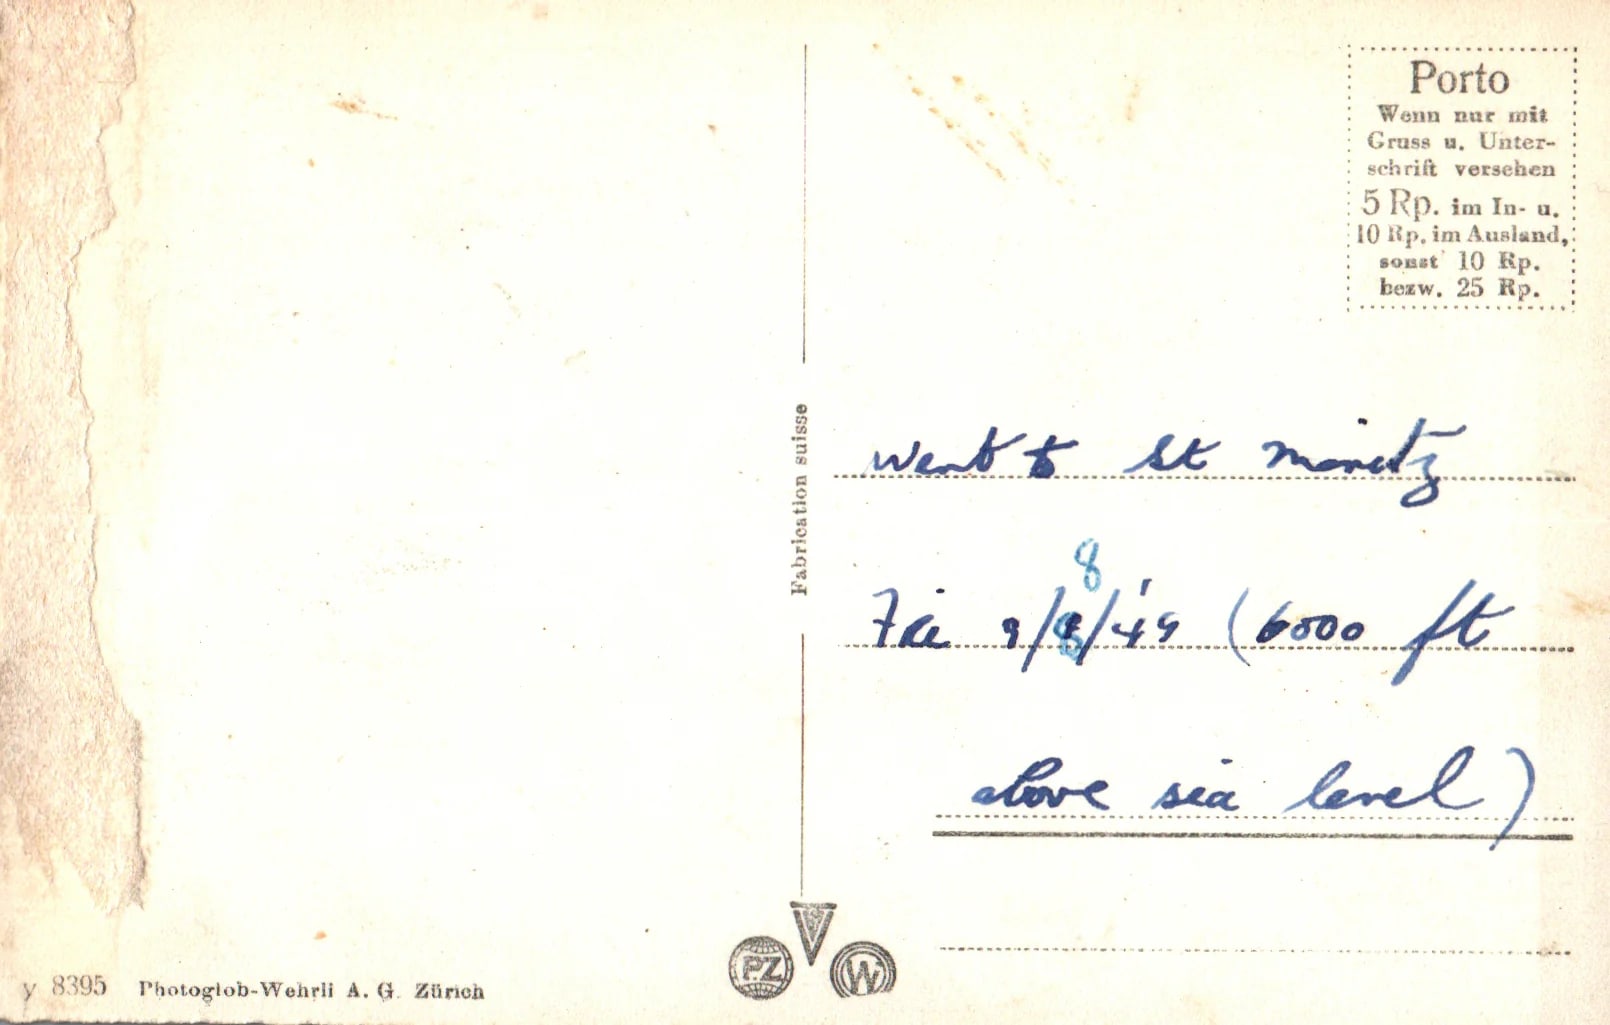 Porto
Wenn nur mit
Gruss u. Unter-
schrift versehen
5 Rp. im In- u.
10 Rp. im Ausland,
sonst 10 Rp.
bezw. 25 Rp.
Fabrication suisse
Went to St Moritz
8
Fri 9/8/'49 (6000 ft
above sea level)
PZ
W
y 8395 Photoglob-Wehrli A. G. Zürich